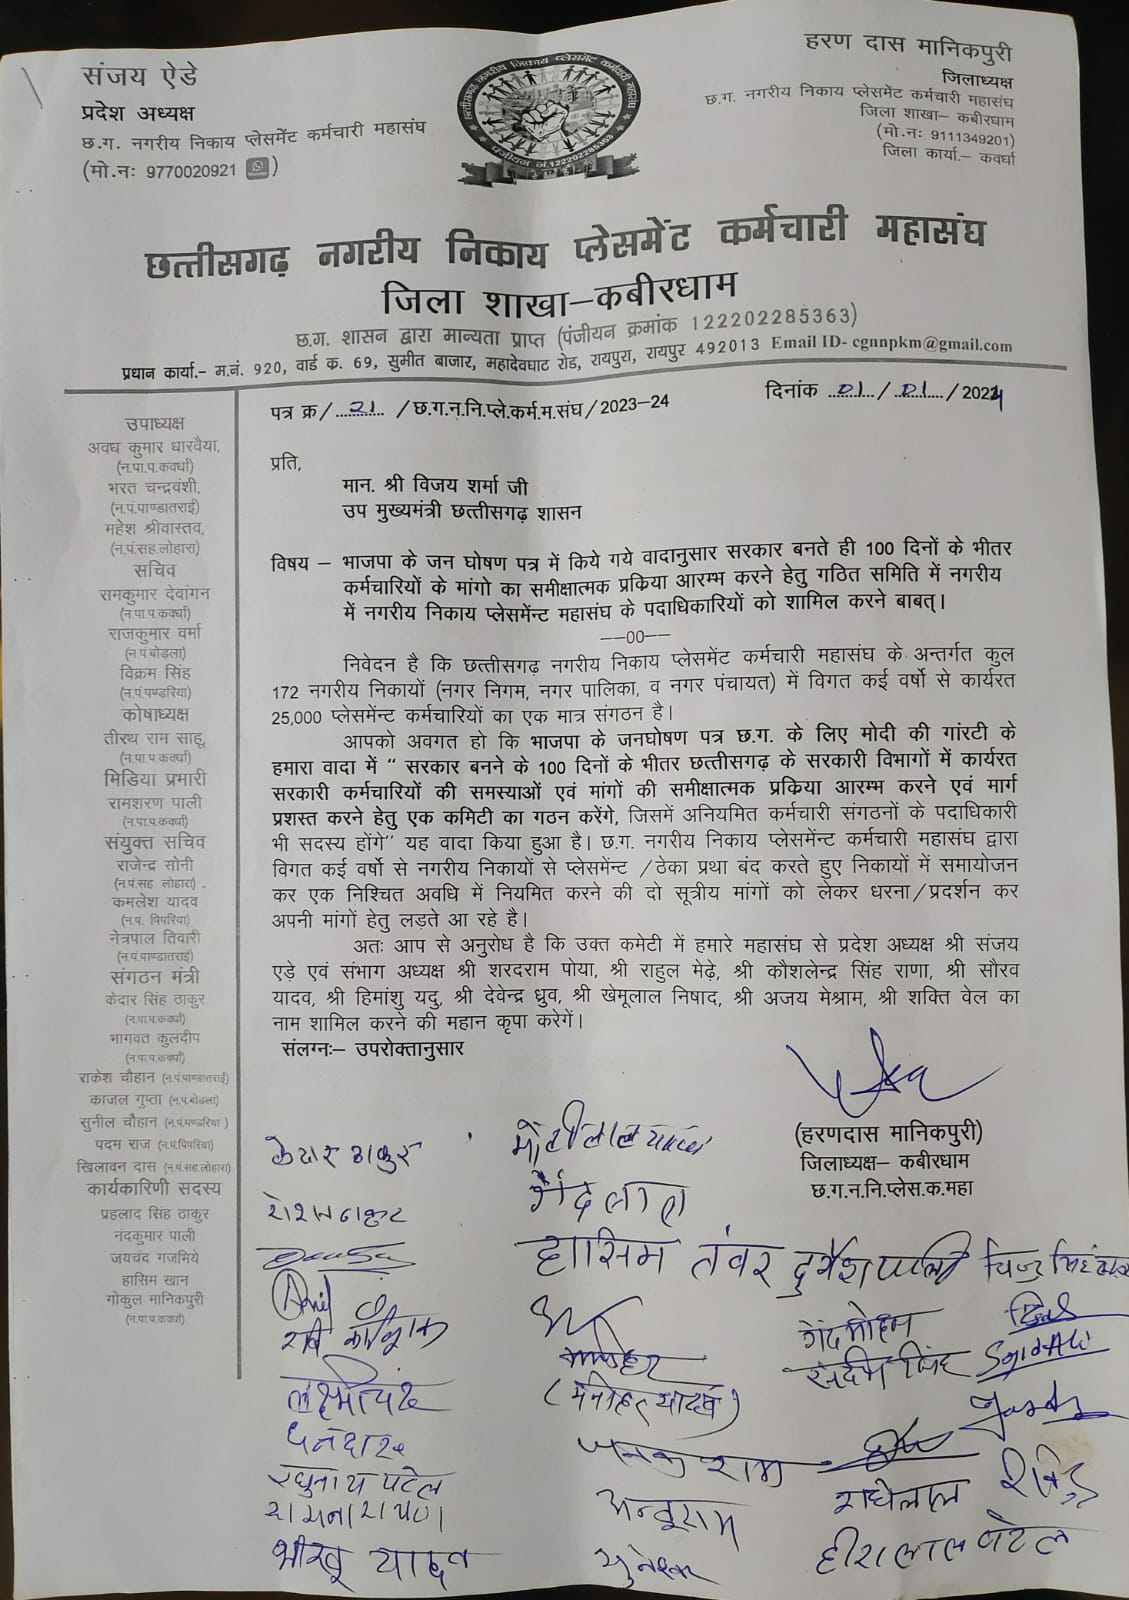 संजय ऐडे
प्रदेश अध्यक्ष
छ.ग. नगरीय निकाय प्लेसमेंट कर्मचारी महासंघ
(मो.नः 9770020921 )
छत्तीसगढ़ नगरीय निकाय प्लेसमेंट कर्मचारी महासंघ
पंजीयन नं.122202285363
हरण दास मानिकपुरी
जिलाध्यक्ष
छ.ग. नगरीय निकाय प्लेसमेंट कर्मचारी महासंघ
जिला शाखा– कबीरधाम
(मो.नः 9111349201)
जिला कार्या.– कवर्धा
छत्तीसगढ़ नगरीय निकाय प्लेसमेंट कर्मचारी महासंघ
जिला शाखा–कबीरधाम
छ.ग. शासन द्वारा मान्यता प्राप्त (पंजीयन क्रमांक 122202285363)
प्रधान कार्या.– म.नं. 920, वार्ड क. 69, सुमीत बाजार, महादेवघाट रोड, रायपुरा, रायपुर 492013 Email ID- cgnnpkm@gmail.com
पत्र क्र/ 21 /छ.ग.न.नि.प्ले.कर्म.म.संघ/2023–24
दिनांक 01 / 01 /2024
उपाध्यक्ष
अवध कुमार धारवैया,
(न.पा.प.कवर्धा)
भरत चन्द्रवंशी,
(न.पं.पाण्डातराई)
महेश श्रीवास्तव,
(न.पं.सह.लोहारा)
सचिव
रामकुमार देवांगन
(न.पा.प.कवर्धा)
राजकुमार वर्मा
(न.पं.बोड़ला)
विक्रम सिंह
(न.पं.पण्डरिया)
कोषाध्यक्ष
तीरथ राम साहू,
(न.पा.प.कवर्धा)
मिडिया प्रभारी
रामशरण पाली
(न.पा.प.कवर्धा)
संयुक्त सचिव
राजेन्द्र सोनी
(न.पं.सह. लोहारा) .
कमलेश यादव
(न.पं. पिपरिया)
नेत्रपाल तिवारी
(न.पं.पाण्डातराई)
संगठन मंत्री
केदार सिंह ठाकुर
(न.पा.प.कवर्धा)
भागवत कुलदीप
(न.पा.प.कवर्धा)
राकेश चौहान (न.पं.पाण्डातराई)
काजल गुप्ता (न.पं.बोडला)
सुनील चौहान (न.पं.पण्डरिया )
पदम राज (न.पं.पिपरिया)
खिलावन दास (न.पं.सह.लोहारा)
कार्यकारिणी सदस्य
प्रहलाद सिंह ठाकुर
नंदकुमार पाली
जयचंद गजभिये
हासिम खान
गोकुल मानिकपुरी
(न.पा.प.कवर्धा)
प्रति,
मान. श्री विजय शर्मा जी
उप मुख्यमंत्री छत्तीसगढ़ शासन
विषय – भाजपा के जन घोषण पत्र में किये गये वादानुसार सरकार बनते ही 100 दिनों के भीतर
कर्मचारियों के मांगो का समीक्षात्मक प्रकिया आरम्भ करने हेतु गठित समिति में नगरीय
में नगरीय निकाय प्लेसमेन्ट महासंघ के पदाधिकारियों को शामिल करने बाबत्।
––00––
निवेदन है कि छत्तीसगढ़ नगरीय निकाय प्लेसमेंट कर्मचारी महासंघ के अन्तर्गत कुल
172 नगरीय निकायों (नगर निगम, नगर पालिका, व नगर पंचायत) में विगत कई वर्षो से कार्यरत
25,000 प्लेसमेन्ट कर्मचारियों का एक मात्र संगठन है।
आपको अवगत हो कि भाजपा के जनघोषण पत्र छ.ग. के लिए मोदी की गांरटी के
हमारा वादा में " सरकार बनने के 100 दिनों के भीतर छत्तीसगढ़ के सरकारी विभागों में कार्यरत
सरकारी कर्मचारियों की समस्याओं एवं मांगों की समीक्षात्मक प्रकिया आरम्भ करने एवं मार्ग
प्रशस्त करने हेतु एक कमिटी का गठन करेंगे, जिसमें अनियमित कर्मचारी संगठनों के पदाधिकारी
भी सदस्य होंगे" यह वादा किया हुआ है। छ.ग. नगरीय निकाय प्लेसमेन्ट कर्मचारी महासंघ द्वारा
विगत कई वर्षो से नगरीय निकायों से प्लेसमेन्ट /ठेका प्रथा बंद करते हुए निकायों में समायोजन
कर एक निश्चित अवधि में नियमित करने की दो सूत्रीय मांगों को लेकर धरना/प्रदर्शन कर
अपनी मांगों हेतु लड़ते आ रहे है।
अतः आप से अनुरोध है कि उक्त कमेटी में हमारे महासंघ से प्रदेश अध्यक्ष श्री संजय
एड़े एवं संभाग अध्यक्ष श्री शरदराम पोया, श्री राहुल मेढ़े, श्री कौशलेन्द्र सिंह राणा, श्री सौरव
यादव, श्री हिमांशु यदु, श्री देवेन्द्र ध्रुव, श्री खेमूलाल निषाद, श्री अजय मेश्राम, श्री शक्ति वेल का
नाम शामिल करने की महान कृपा करेगें।
संलग्नः– उपरोक्तानुसार
(हरणदास मानिकपुरी)
जिलाध्यक्ष– कबीरधाम
छ.ग.न.नि.प्लेस.क.महा
केदार ठाकुर
मोतीलाल यादव
रोशन ठाकुर
गेंदलाल
हासिम तंवर दुर्गेश पाली
Anil
गेंदमोहन
लक्ष्मीचंद
मनोहर
संदीप सिंह
(मनोहर यादव)
जनक राम
रघुनाथ पटेल
राधेलाल
रविन्द्र
रामनारायण
मन्तुराम
भीखू यादव
मुनेश्वर
हीरालाल पटेल